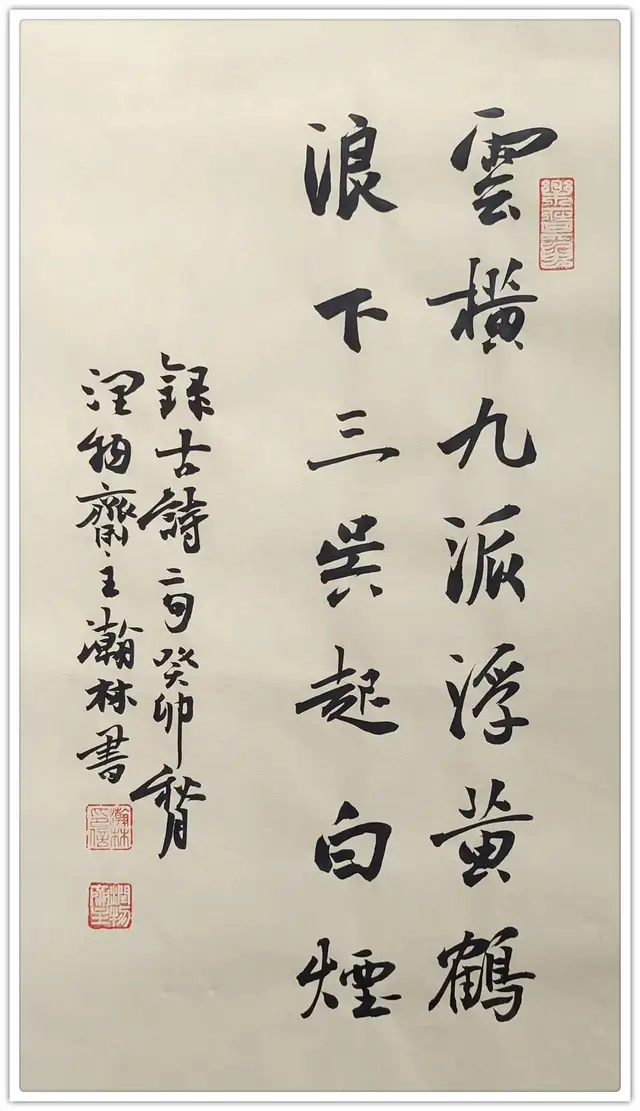 雲橫九派浮黃鶴
浪下三吳起白煙
錄古詩二句癸卯
潤物齋主瀚林書
瀚林印信